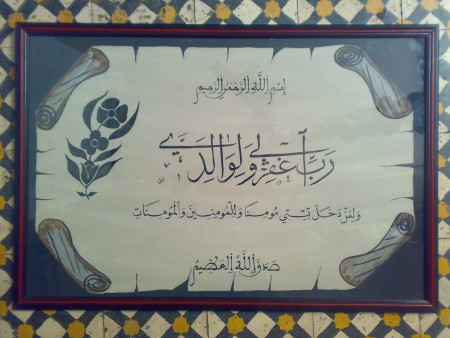 بسم الله الرحمن الرحيم
رب اغفر لي ولوالدي
ولمن دخل بيتي مومنا وللمومنين والمومنات
صدق الله العظيم